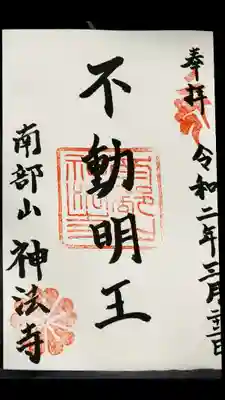 奉拝
令和二年三月日
不動明王
南部山
神法寺